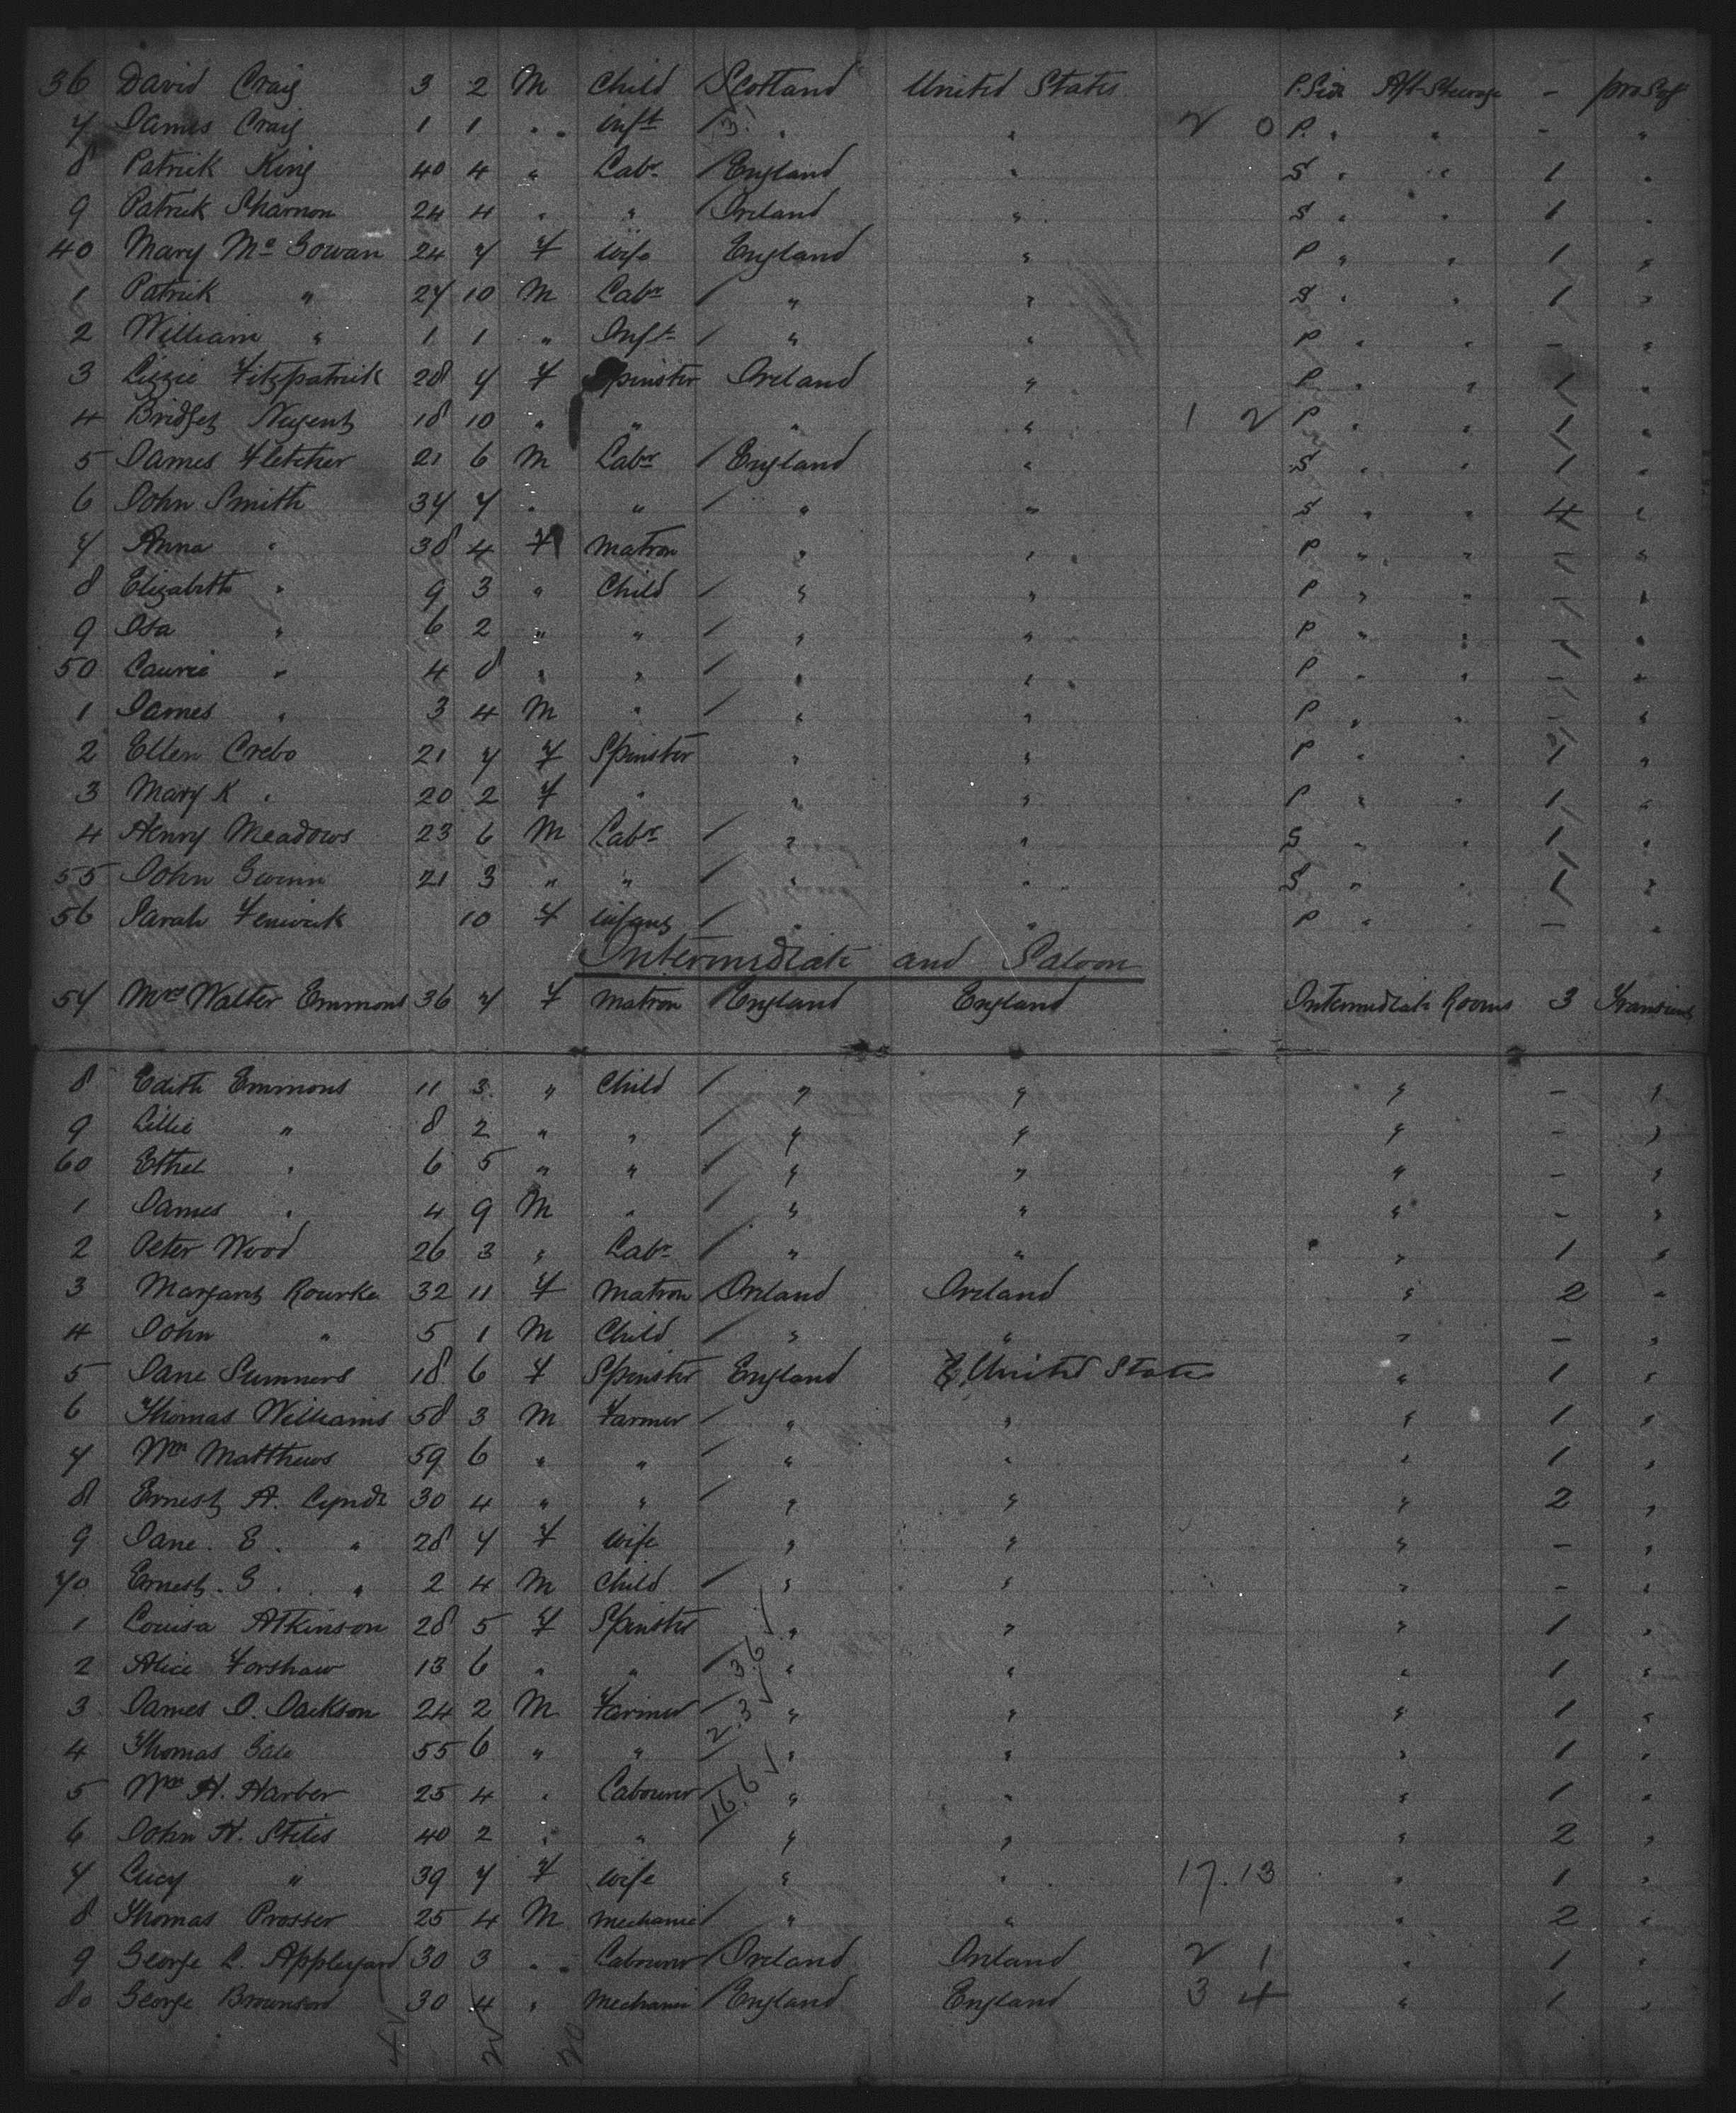 36 David Craig 3 2 M Child Scotland United States P. Side Aft Steerage - pro Sej
7 James Craig 1 1 " Inft " " 2 0 P. " " - "
8 Patrick King 40 4 " Labr England " S " " 1 "
9 Patrick Shannon 24 4 " " Ireland " S " " 1 "
40 Mary Mc Gowan 24 7 F Wife England " P " " 1 "
1 Patrick " 27 10 M Labr " " S " " 1 "
2 William " 1 1 " Inft " " P " " - "
3 Lizzie Fitzpatrick 28 7 F Spinster Ireland " P " " 1 "
4 Bridget Nugent 18 10 " " " " 1 2 P " " 1 "
5 James Fletcher 21 6 M Labr England " S " " 1 "
6 John Smith 37 7 " " " " S " " 4 "
7 Anna " 38 4 F Matron " " P " " - "
8 Elizabeth " 9 3 " Child " " P " " - "
9 Isa " 6 2 " " " " P " " - "
50 Laurie " 4 8 " " " " P " " - "
1 James " 3 4 M " " " P " " - "
2 Ellen Crebo 21 7 F Spinster " " P " " 1 "
3 Mary K " 20 2 F " " " P " " 1 "
4 Henry Meadows 23 6 M Labr " " S " " 1 "
55 John Gwinn 21 3 " " " " S " " 1 "
56 Sarah Fenwick 10 F Infant " " P " " - "
Intermediate and Saloon
57 Mrs Walter Emmons 36 7 F Matron England England Intermediate Rooms 3 Transient
8 Edith Emmons 11 3 " Child " " " - "
9 Lillie " 8 2 " " " " " - "
60 Ethel " 6 5 " " " " " - "
1 James " 4 9 M " " " " - "
2 Peter Wood 26 3 " Labr " " " 1 "
3 Margaret Rourke 32 11 F Matron Ireland Ireland " 2 "
4 John " 5 1 M Child " " " - "
5 Jane Summers 18 6 F Spinster England United States " 1 "
6 Thomas Williams 58 3 M Farmer " " " 1 "
7 Wm Matthews 59 6 " " " " " 1 "
8 Ernest A. Lynde 30 4 " " " " " 2 "
9 Jane E. " 28 7 F Wife " " " - "
70 Ernest G. " 2 4 M Child " " " - "
1 Louisa Atkinson 28 5 F Spinster " " " 1 "
2 Alice Forshaw 13 6 " " " " " 1 "
3 James J. Jackson 24 2 M Farmer " " " 1 "
4 Thomas Gale 55 6 " " " " " 1 "
5 Wm H. Harber 25 4 " Labourer " " " 1 "
6 John H. Stiles 40 2 " " " " " 2 "
7 Lucy " 39 7 F Wife " " 17.13 " 1 "
8 Thomas Prosser 25 4 M Mechanic " " " 2 "
9 George L. Appleyard 30 3 " Labourer Ireland Ireland 2 1 " 1 "
80 George Brownson 30 4 " Mechanic England England 3 4 " 1 "